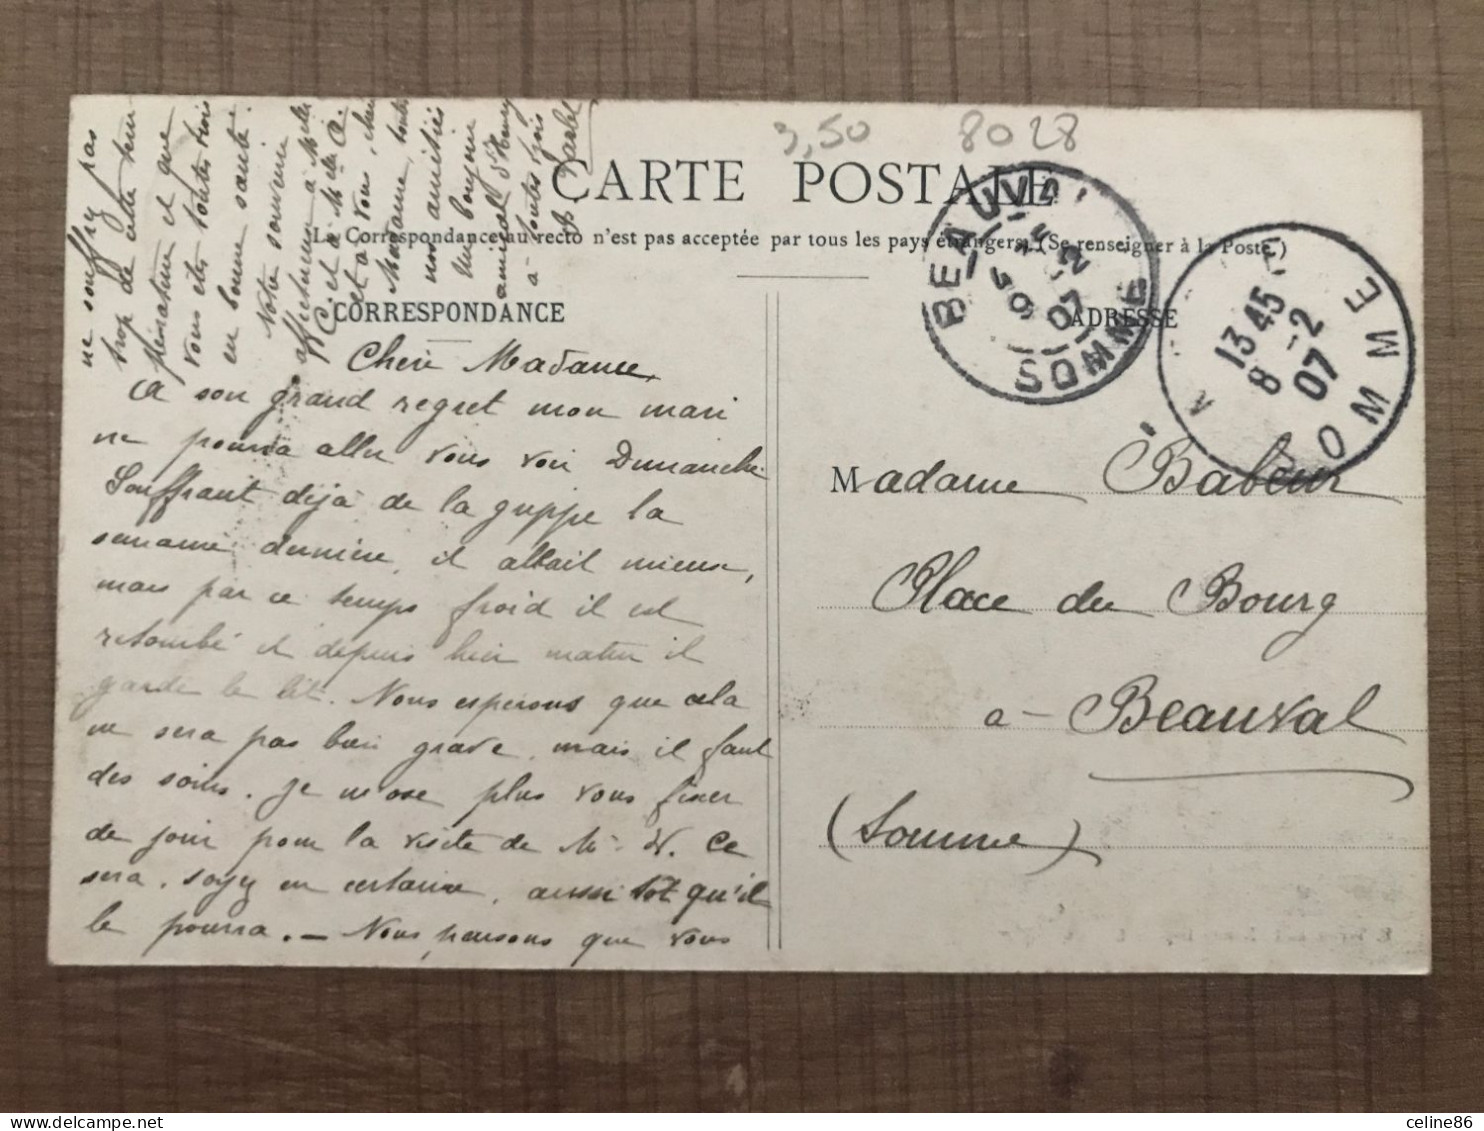 3,50 8028
CARTE POSTALE
La Correspondance au recto n'est pas acceptée par tous les pays étrangers. (Se renseigner à la Poste.)
CORRESPONDANCE
ADRESSE
BEAUVAL
SOMME
9-2
07
13 45
8 -2
07
SOMME
Chère Madame,
A son grand regret mon mari
ne pourra aller vous voir Dimanche.
Souffrant déjà de la grippe la
semaine dernière, il allait mieux,
mais par ce temps froid il est
retombé et depuis hier matin il
garde le lit. Nous espérons que cela
ne sera pas bien grave, mais il faut
des soins. Je n'ose plus vous fixer
de jour pour la visite de Mr W. Ce
sera, soyez en certaine, aussi tôt qu'il
le pourra. — Nous pensons que vous
ne souffrez pas
trop de cette tem-
pérature et que
vous êtes toutes trois
en bonne santé.
Notre souvenir
affectueux à Melle
C. et à Melle A.
et à vous, chère
Madame, toutes
nos amitiés
Un bonjour
amical d'Henry
à toutes trois
Madame Babeur
Place du Bourg
a - Beauval
(Somme)
celine86